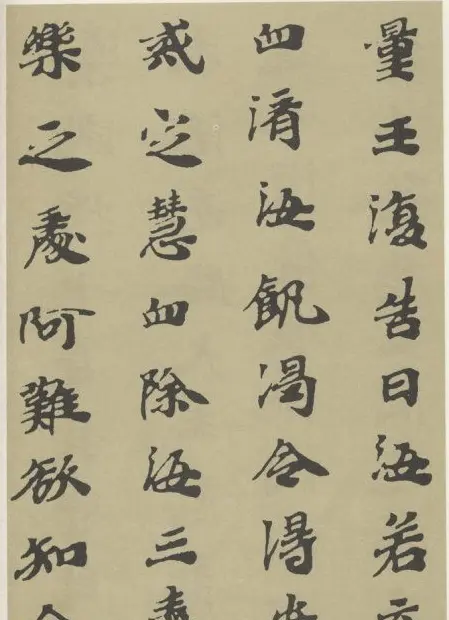 量王復告曰汝若
血濟汝飢渴令得
戒定慧血除汝三毒
樂之處阿難欲知